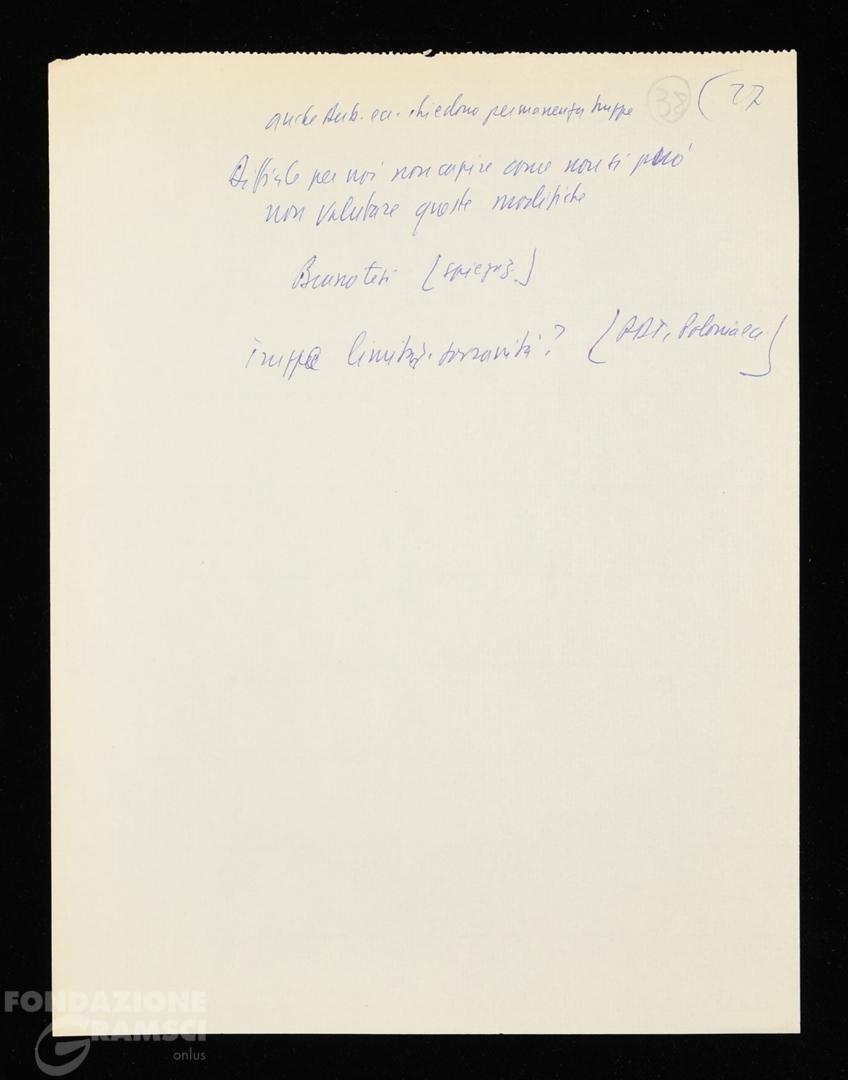 38 ( 27
anche Dub. ecc. chiedono permanenza truppe
Difficile per noi non capire come non si può
non valutare queste modifiche
[spiegaz.]
truppe limitaz. sovranità? [DDT, Polonia ecc.]
FONDAZIONE
GRAMSCI
onlus